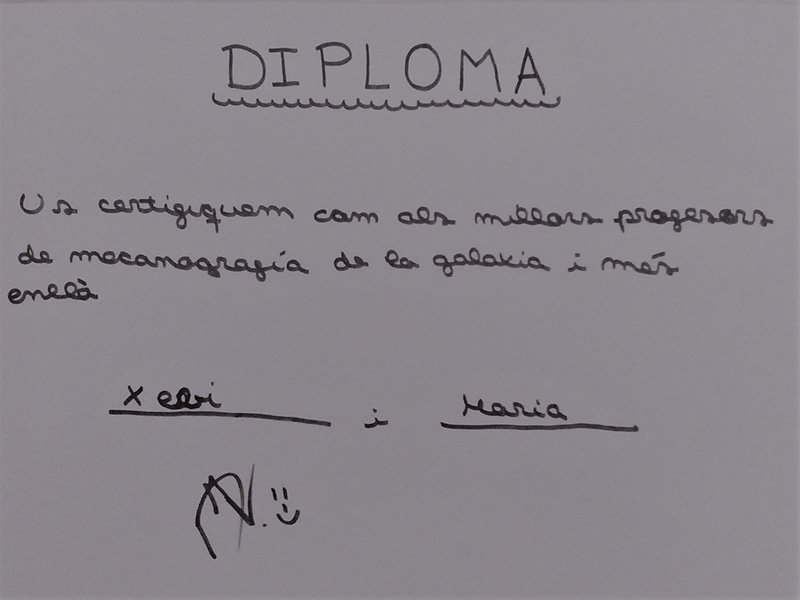 DIPLOMA
Us certifiquem com als millors professors
de mecanografía de la galaxia i més
enllà
Xevi i Maria